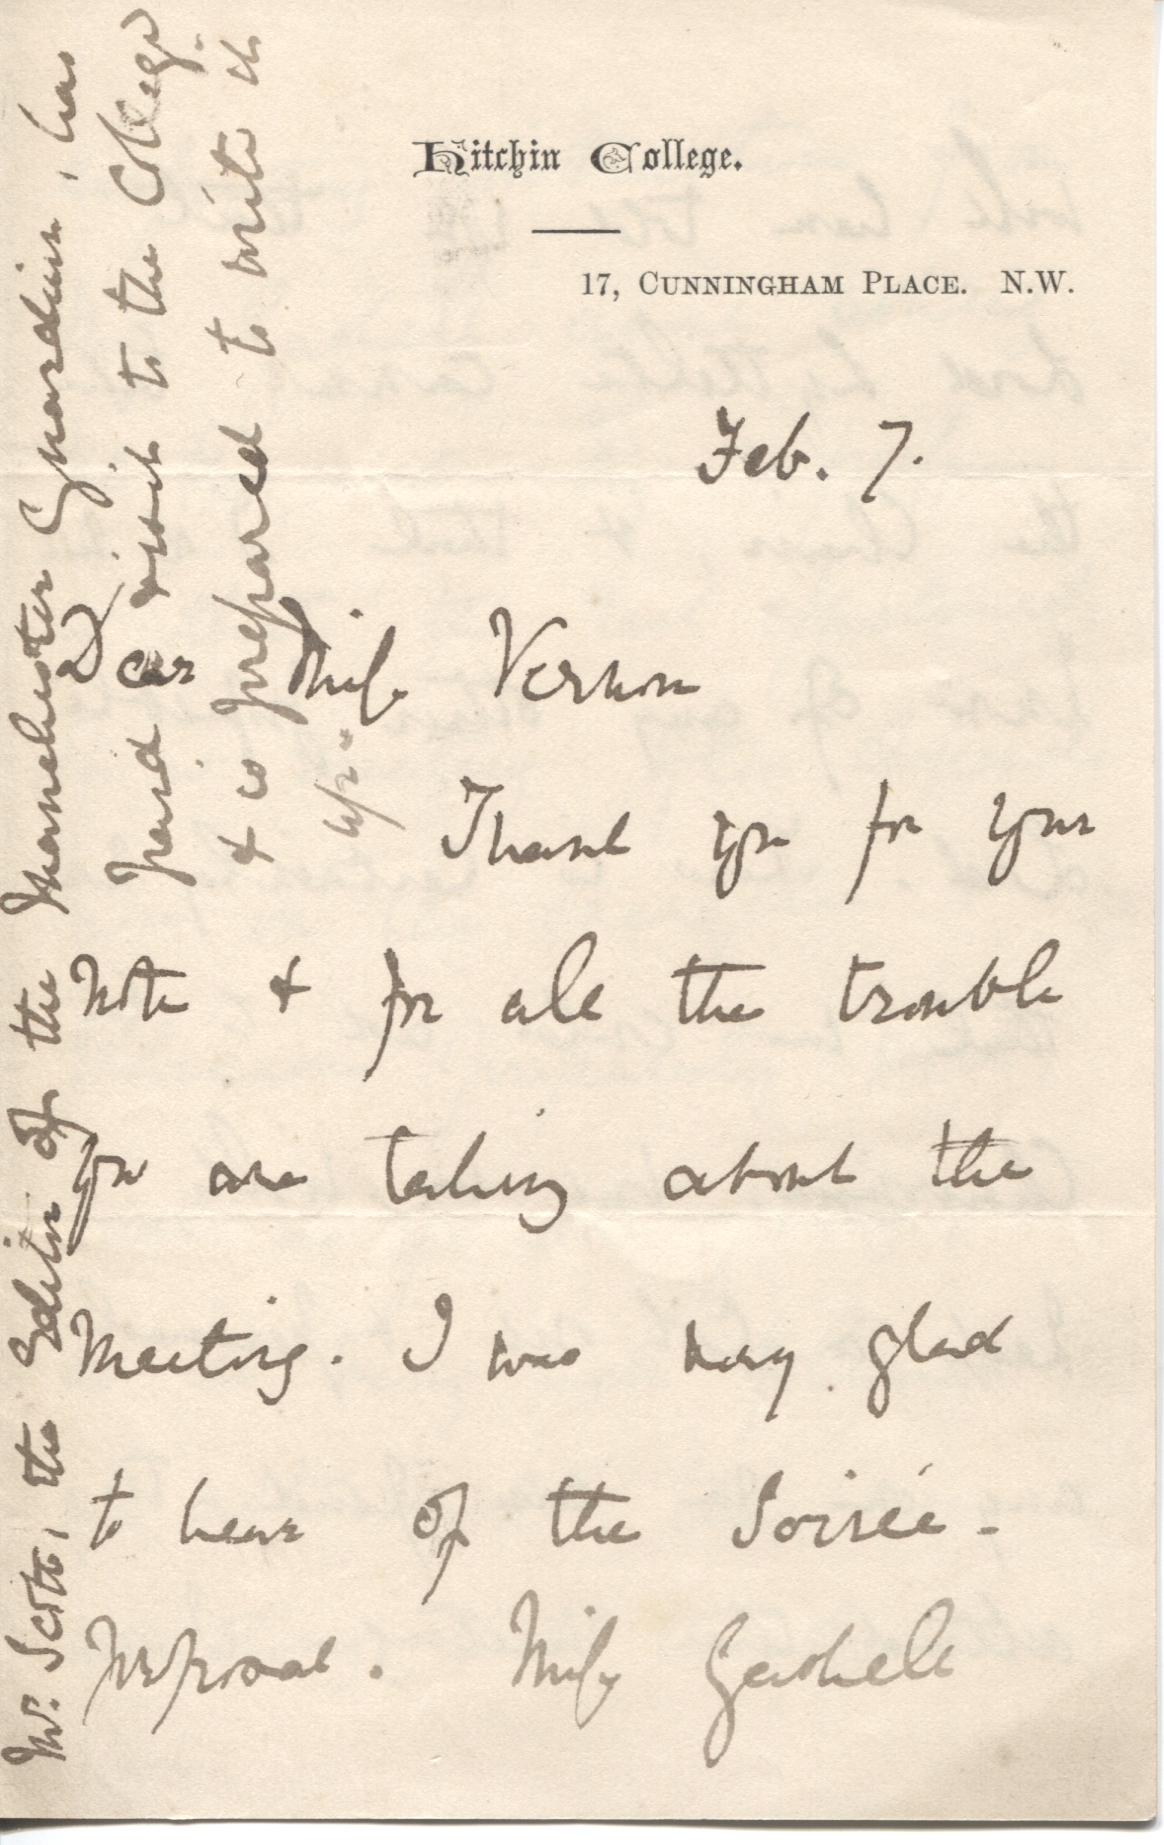 Hitchin College.
17, CUNNINGHAM PLACE. N.W.
Feb. 7.
Dear Miss Vernon
Thank you for your
note & for all the trouble
you are taking about the
meeting. I was very glad
to hear of the Soirée-
proposal. Miss Gaskell
Mr. Scott, the Editor of the Manchester Guardian, has
paid a visit to the College
& is prepared to write it
up.